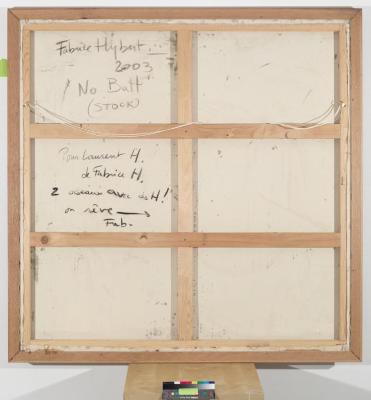 Fabrice Hybert...
2003
No Butt
(STOCK)
Pour Laurent H.
de Fabrice H.
2 oiseaux avec des H!
on rêve
Fab.